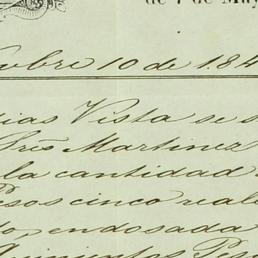 de 7 de May
ubre 10 de 184
ias Vista se s
Sres Martinez
la cantidad
Pesos cinco reale
do, endosada
Quinientos Pes